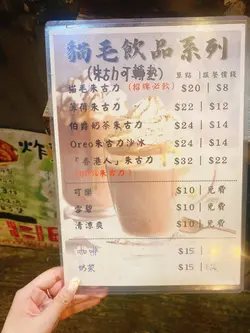 貓毛飲品系列
(朱古力可轉熱)
單點|跟餐價錢
貓毛朱古力 (招牌必飲) $20 | $8
薄荷朱古力 $24 | $12
伯爵奶茶朱古力 $24 | $14
Oreo朱古力沙冰 $24 | $14
「香港人」朱古力 $32 | $22
朱古力)
可樂 $10 | 免費
雪碧 $10 | 免費
清涼爽 $10 | 免費
咖啡 $15 |
奶茶 $15 |
炸